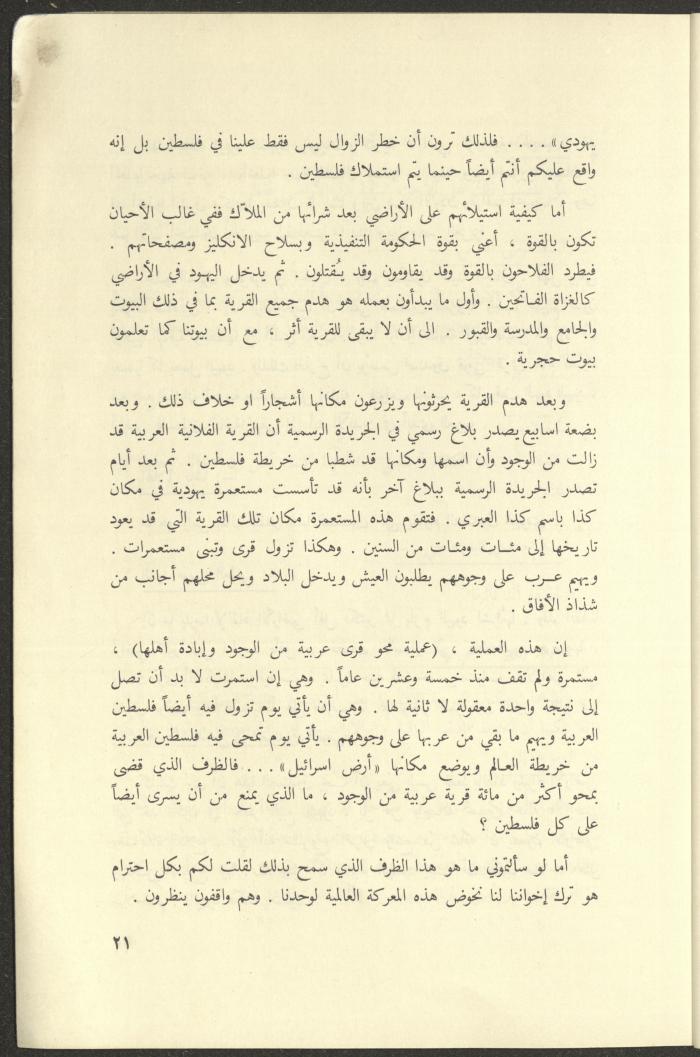 يهودي» . . . . فلذلك ترون أن خطر الزوال ليس فقط علينا في فلسطين بل إنه
واقع عليكم أنتم أيضاً حينما يتم استملاك فلسطين .
أما كيفية استيلائهم على الأراضي بعد شرائها من الملاّك ففي غالب الأحيان
تكون بالقوة ، أعني بقوة الحكومة التنفيذية وبسلاح الانكليز ومصفحاتهم .
فيطرد الفلاحون بالقوة وقد يقاومون وقد يُقتلون . ثم يدخل اليهود في الأراضي
كالغزاة الفاتحين . وأول ما يبدأون بعمله هو هدم جميع القرية بما في ذلك البيوت
والجامع والمدرسة والقبور . الى أن لا يبقى للقرية أثر ، مع أن بيوتنا كما تعلمون
بيوت حجرية .
وبعد هدم القرية يحرثونها ويزرعون مكانها أشجاراً او خلاف ذلك . وبعد
بضعة اسابيع يصدر بلاغ رسمي في الجريدة الرسمية أن القرية الفلانية العربية قد
زالت من الوجود وأن اسمها ومكانها قد شطبا من خريطة فلسطين . ثم بعد أيام
تصدر الجريدة الرسمية ببلاغ آخر بأنه قد تأسست مستعمرة يهودية في مكان
كذا باسم كذا العبري . فتقوم هذه المستعمرة مكان تلك القرية التي قد يعود
تاريخها إلى مئات ومئات من السنين . وهكذا تزول قرى وتبنى مستعمرات .
ويهيم عرب على وجوههم يطلبون العيش ويدخل البلاد ويحل محلهم أجانب من
شذاذ الأفاق .
إن هذه العملية ، (عملية محو قرى عربية من الوجود وإبادة أهلها) ،
مستمرة ولم تقف منذ خمسة وعشرين عاماً . وهي إن استمرت لا بد أن تصل
إلى نتيجة واحدة معقولة لا ثانية لها . وهي أن يأتي يوم تزول فيه أيضاً فلسطين
العربية ويهيم ما بقي من عربها على وجوههم . يأتي يوم تمحى فيه فلسطين العربية
من خريطة العالم ويوضع مكانها «أرض اسرائيل» . . . فالظرف الذي قضى
بمحو أكثر من مائة قرية عربية من الوجود ، ما الذي يمنع من أن يسرى أيضاً
على كل فلسطين ؟
أما لو سألتموني ما هو هذا الظرف الذي سمح بذلك لقلت لكم بكل احترام
هو ترك إخواننا لنا نخوض هذه المعركة العالمية لوحدنا . وهم واقفون ينظرون .
٢١